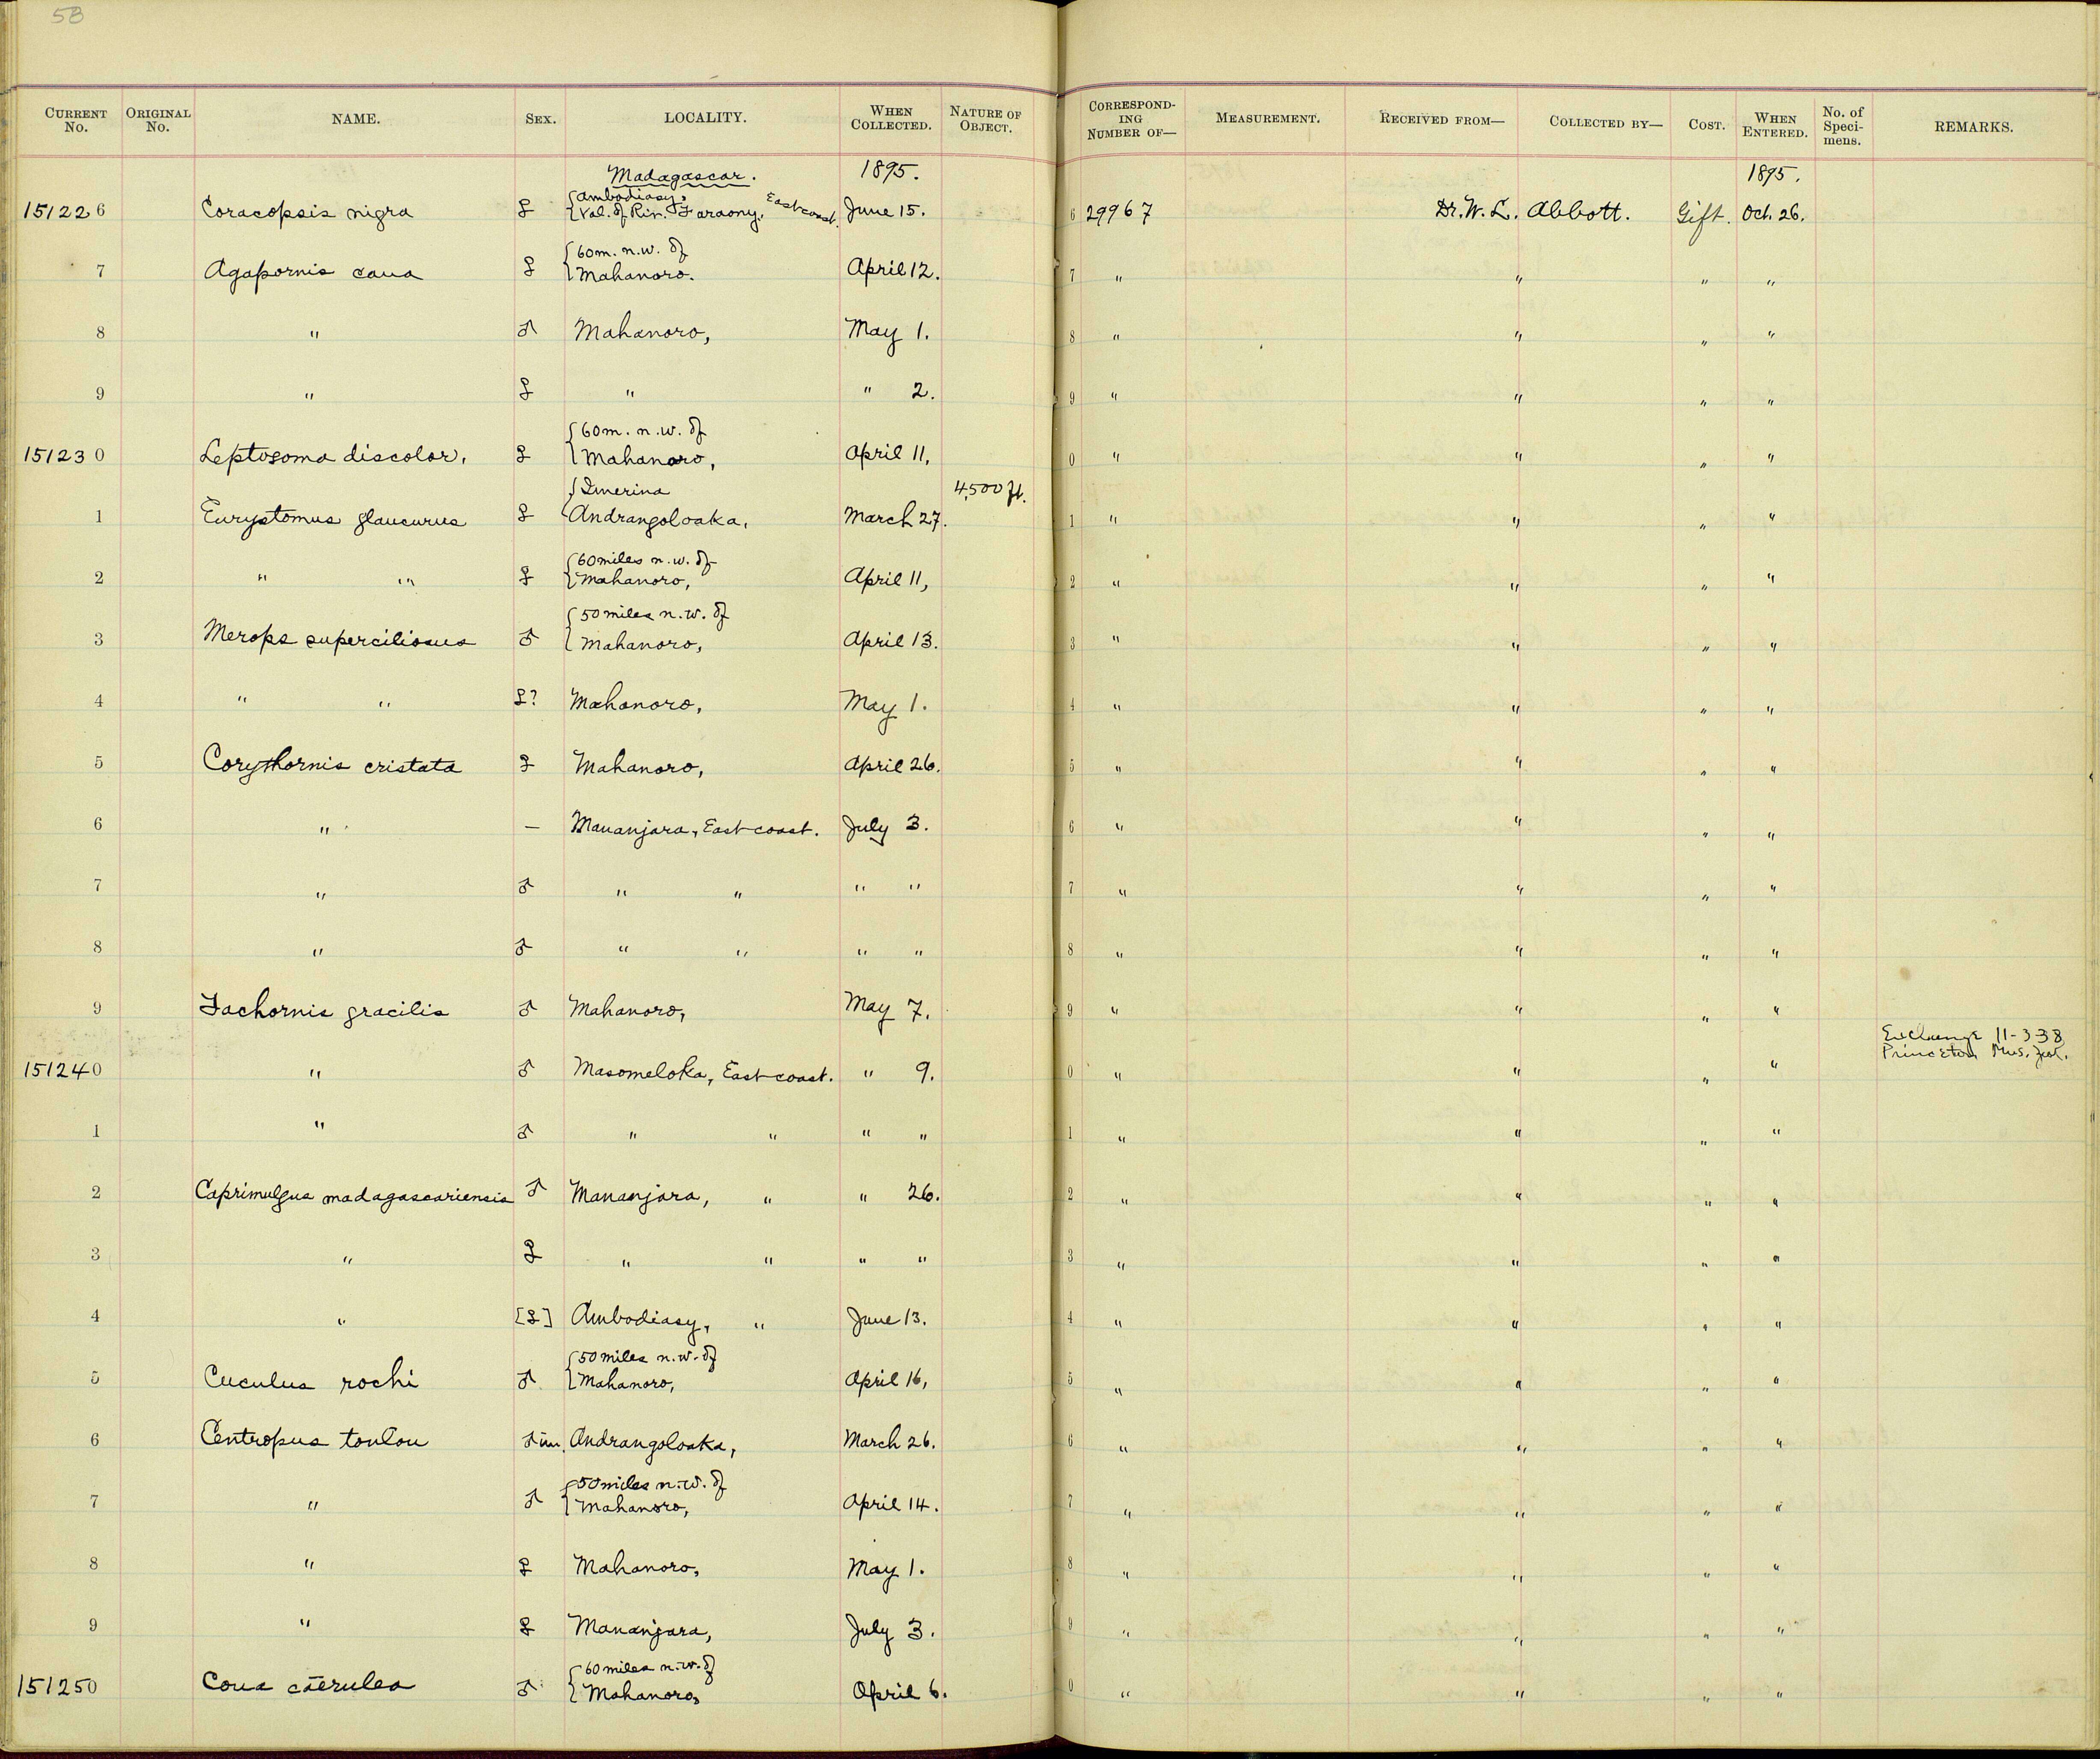 58
CURRENT No. ORIGINAL No. NAME. SEX. LOCALITY. WHEN COLLECTED. NATURE OF OBJECT. CORRESPONDING NUMBER OF— MEASUREMENT. RECEIVED FROM— COLLECTED BY— COST. WHEN ENTERED. No. of Specimens. REMARKS.
Madagascar. 1895. 1895.
151226 Coracopsis nigra ♀ {Ambodiasy, Val. of Riv. Faraony, East coast. June 15. 6 29967 Dr. W. L. Abbott. Gift. Oct. 26.
7 Agapornis cana ♀ {60 m. n.w. of Mahanoro. April 12. 7 " " " "
8 " ♂ Mahanoro, May 1. 8 " " " "
9 " ♀ " " 2. 9 " " " "
151230 Leptosoma discolor, ♀ {60 m. n.w. of Mahanoro, April 11, 0 " " " "
1 Eurystomus glaucurus ♀ {Imerina Andrangoloaka, March 27. 4,500 ft. 1 " " " "
2 " " ♀ {60 miles n.w. of Mahanoro, April 11, 2 " " " "
3 Merops superciliosus ♂ {50 miles n.w. of Mahanoro, April 13. 3 " " " "
4 " " ♀? Mahanoro, May 1. 4 " " " "
5 Corythornis cristata ♀ Mahanoro, April 26. 5 " " " "
6 " — Mananjara, East coast. July 3. 6 " " " "
7 " ♂ " " " " 7 " " " "
8 " ♂ " " " " 8 " " " "
9 Tachornis gracilis ♂ Mahanoro, May 7. 9 " " " "
151240 " ♂ Masomeloka, East coast. " 9. 0 " " " " Exchange 11-3-38 Princeton Mus. Zool.
1 " ♂ " " " " 1 " " " "
2 Caprimulgus madagascariensis ♂ Mananjara, " " 26. 2 " " " "
3 " ♀ " " " " 3 " " " "
4 " [♀] Ambodiasy, " June 13. 4 " " " "
5 Cuculus rochi ♂ {50 miles n.w. of Mahanoro, April 16, 5 " " " "
6 Centropus toulou ♂ im. Andrangoloaka, March 26. 6 " " " "
7 " ♂ {50 miles n.w. of Mahanoro, April 14. 7 " " " "
8 " ♀ Mahanoro, May 1. 8 " " " "
9 " ♀ Mananjara, July 3. 9 " " " "
151250 Coua cærulea ♂ {60 miles n.w. of Mahanoro, April 6. 0 " " " "